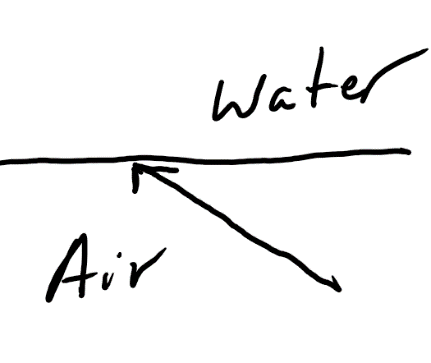 Water
Air